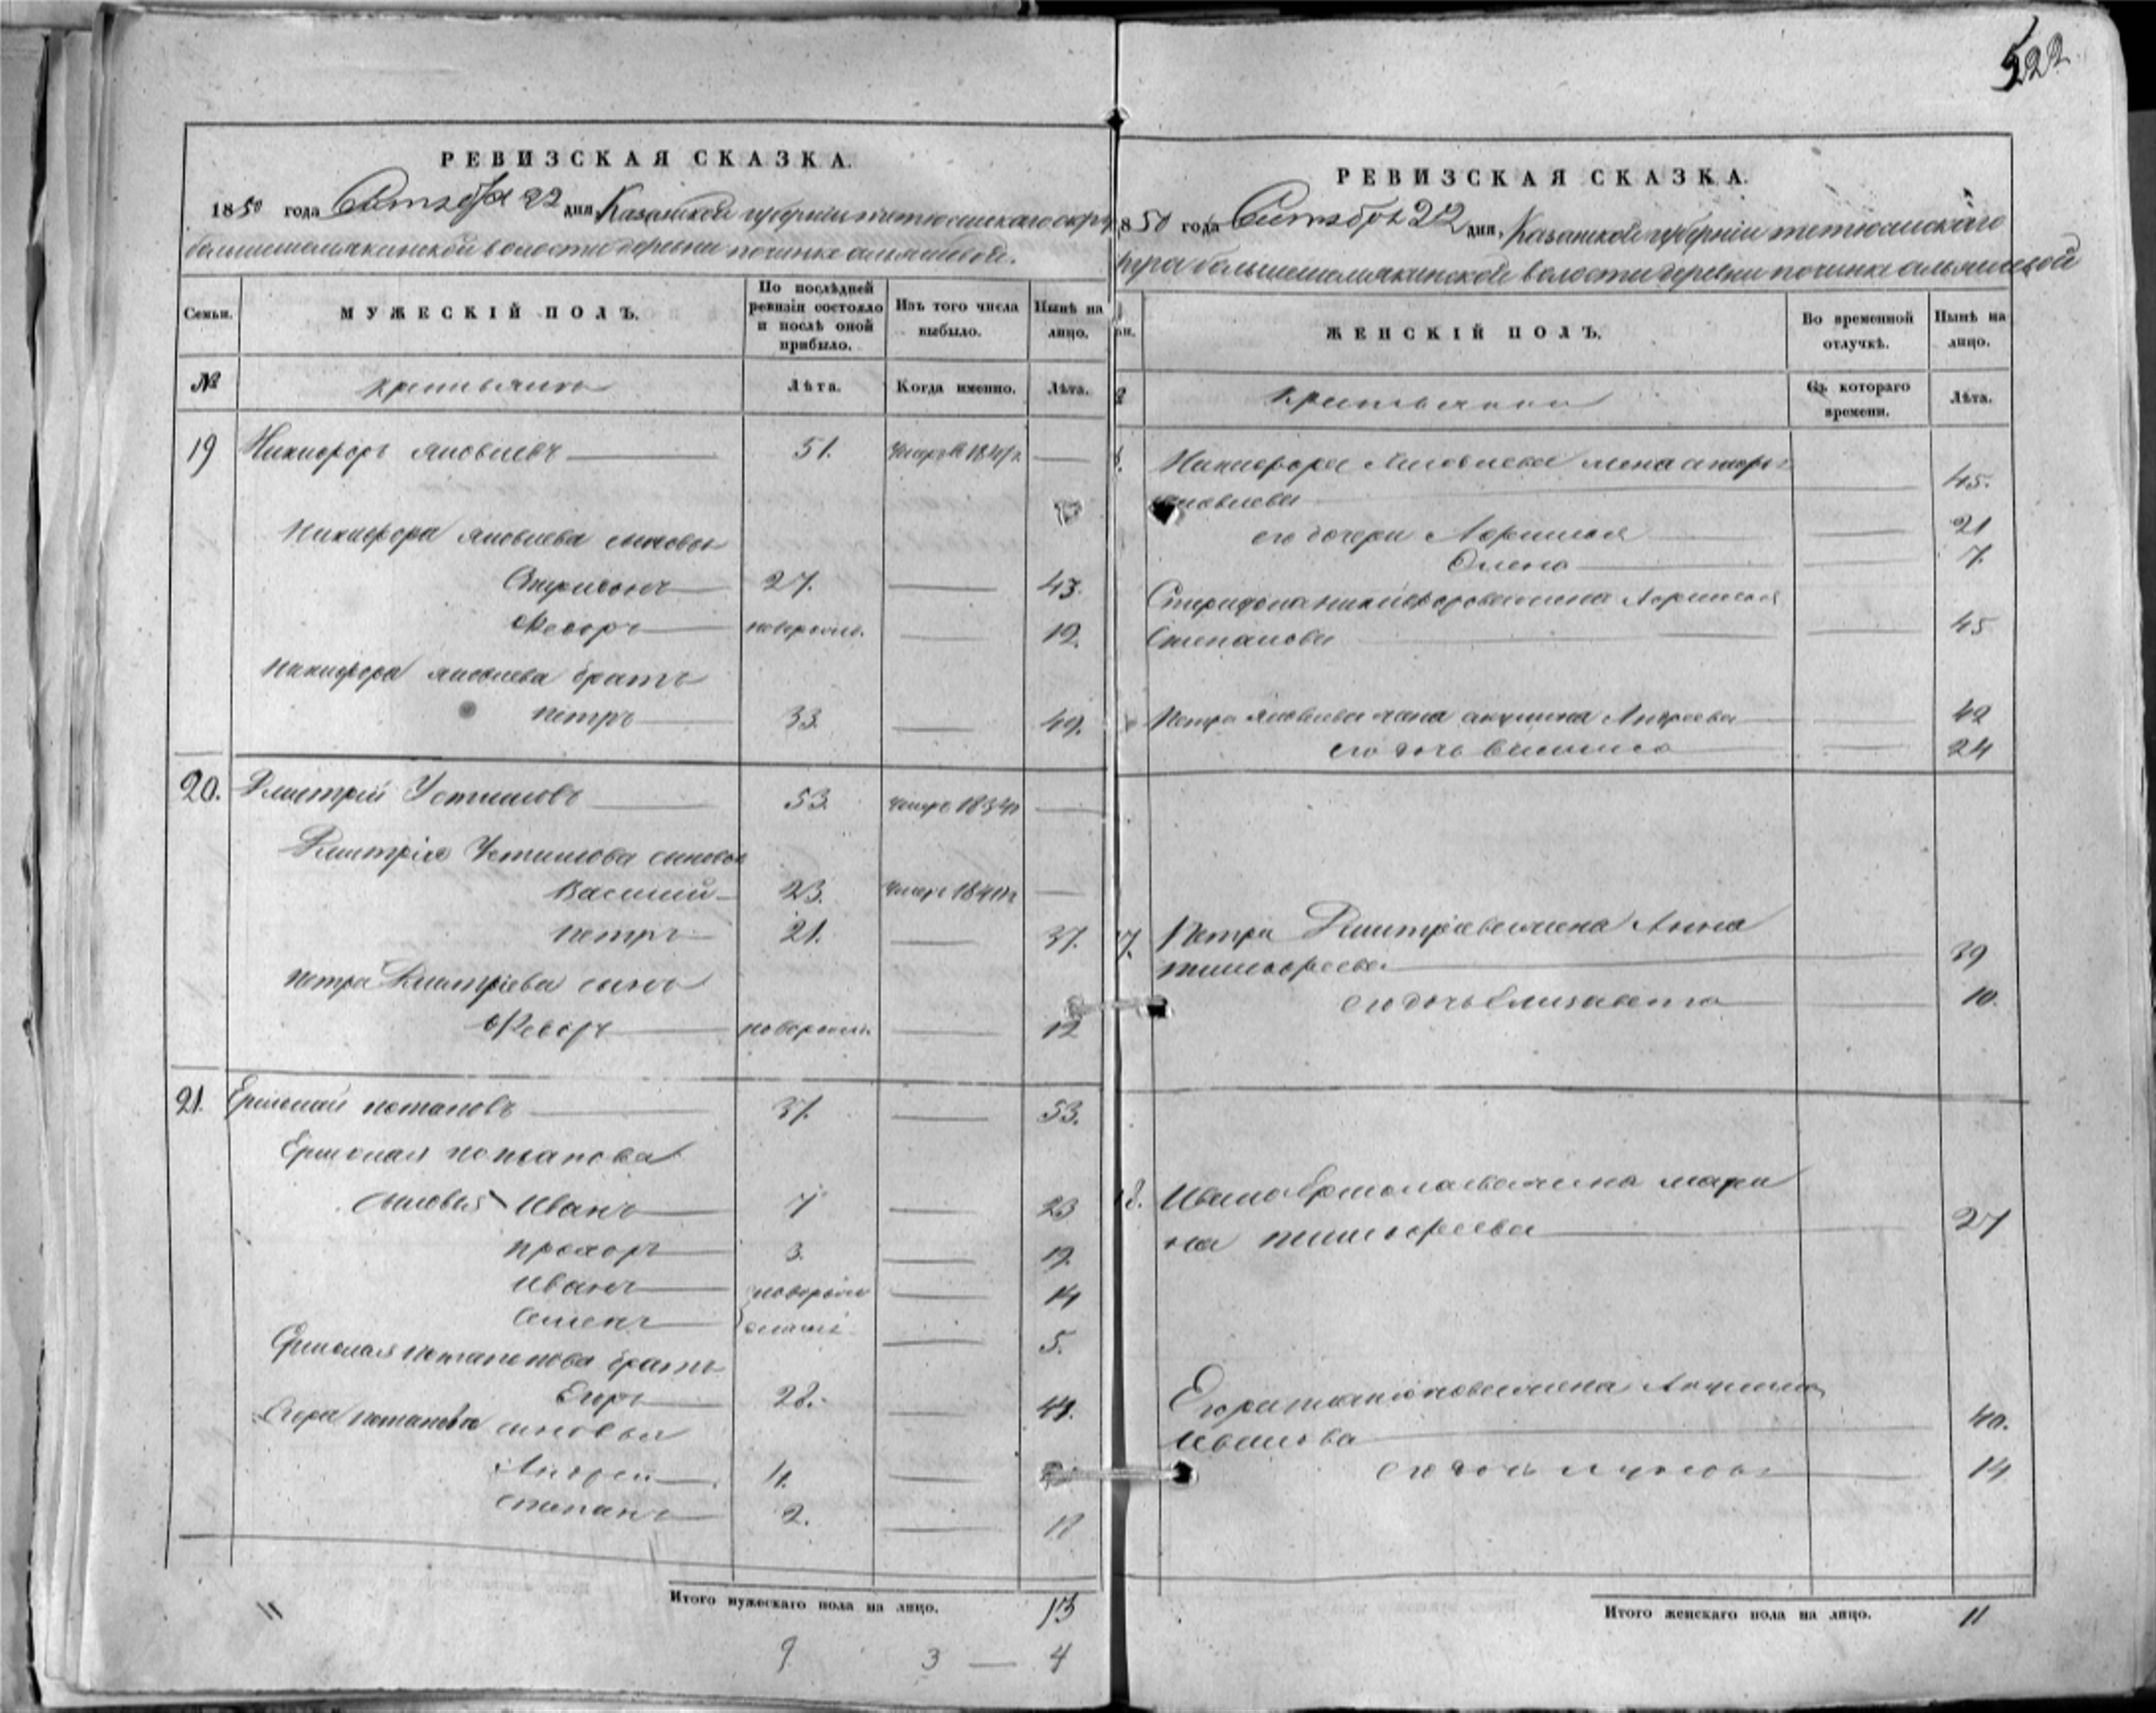 522
РЕВИЗСКАЯ СКАЗКА.
1850 года Сентября 22 дня Казанской губернии тетюшскаго окру
большешемякинской волости деревни починка альяшевой.
Семьи.
МУЖЕСКІЙ ПОЛЪ.
По послѣдней ревизіи состояло и послѣ оной прибыло.
Изъ того числа выбыло.
Нынѣ на лицо.
№
крестьяне
Лѣта.
Когда именно.
Лѣта.
19 Никифоръ яковлевъ 51. —
Никифора яковлева сыновья
Спиридонъ 27. — 43.
Федоръ новорожд. — 12.
Никифора яковлева братъ
петръ 33. — 49.
20. Дмитрій Устиновъ 53. умеръ 1834 —
Дмитрія Устинова сыновья
Василий 23. умеръ —
петръ 21. — 37.
петра Дмитріева сынъ
Федоръ новорожд. — 12
21. Ермолай потаповъ 37. — 53.
Ермолая потапова
сыновья Иванъ 7 — 23
прохоръ 3. — 19.
Иванъ новорож — 14
Семенъ — 5.
Ермолая братъ
Егоръ 28. — 44.
Егора потапова сыновья
Андрей 4. —
степанъ 2. — 18
Итого мужескаго пола на лицо. 13
9 3 — 4
РЕВИЗСКАЯ СКАЗКА.
1850 года Сентября 22 дня, Казанской губерніи тетюшскаго
округа большешемякинской волости деревни починка альяшевой
ЖЕНСКІЙ ПОЛЪ.
Во временной отлучкѣ.
Нынѣ на лицо.
крестьянки
Съ котораго времени.
Лѣта.
Никифора Яковлева жена
яковлева — 45.
его дочери — 21
Олена — 7.
Спиридона никифорова жена
Степанова — 45
Петра яковлева жена акулина Андреева — 42
его дочь — 24
17. Петра Дмитріева жена Анна
тимофеева — 39
его дочь Елизавета — 10.
18. Ивана Ермолаева жена мари
на тимофеева 27
Егора жена Акулина
Иванова — 40.
его дочь — 14
Итого женскаго пола на лицо. 11